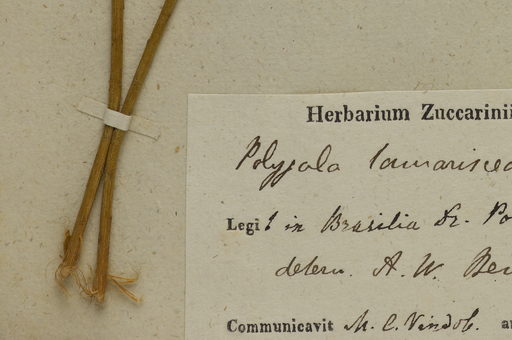 Herbarium Zuccarinii
Polygala tamariscea
Legit in Brasilia Dr. Po
determ. A. W. Ben
Communicavit M. C. Vindob. a